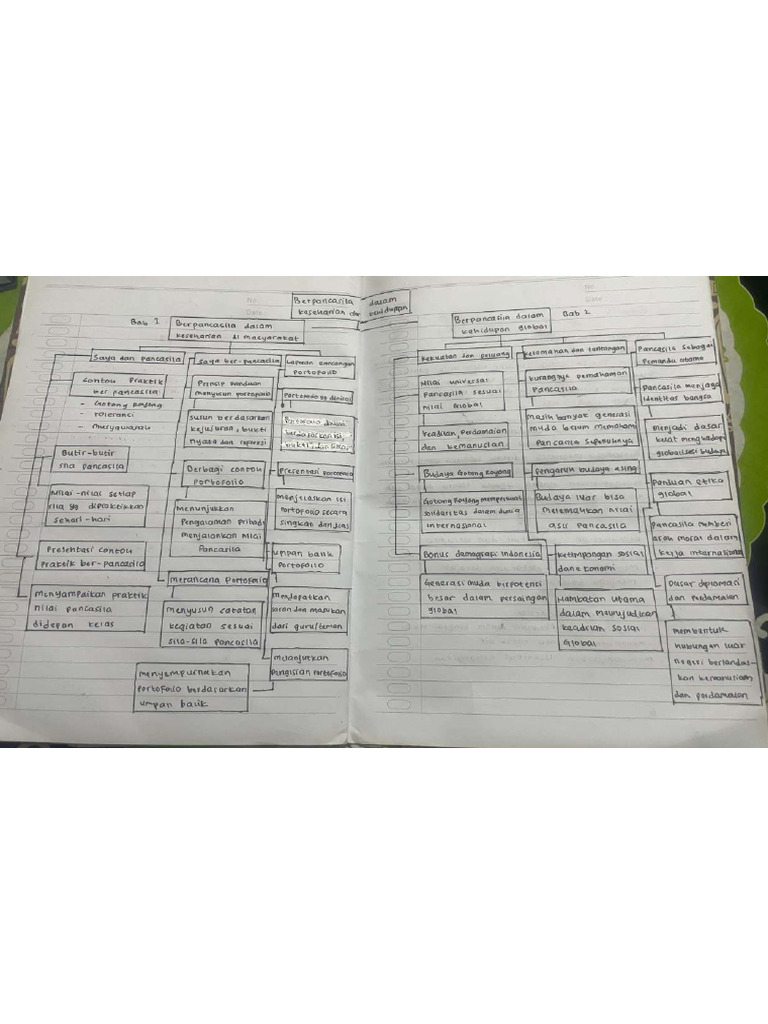 No
Date
Berpancasila dalam
keseharian dan kehidupan
Bab 1
Berpancasila dalam
keseharian di masyarakat
Saya dan pancasila
Contoh praktik
ber pancasila
- Gotong Royong
- Toleransi
- Musyawarah
Butir-butir
sila pancasila
Nilai-nilai setiap
sila yg dipraktikkan
sehari-hari
Presentasi contoh
Praktik ber-pancasila
menyampaikan praktik
nilai pancasila
didepan kelas
Saya ber-pancasila
Prinsip panduan
menyusun portofolio
susun berdasarkan
kejujuran, bukti
nyata dan refleksi
Berbagi contoh
portofolio
menunjukkan
Pengalaman pribadi
menjalankan nilai
Pancasila
merancana portofolio
menyusun catatan
kegiatan sesuai
sila-sila pancasila
Laporan rancangan
portofolio
Portofolio yg dinilai
dinilai
berdasarkan isi,
bukti,
Presentasi portofolio
menjelaskan isi
portofolio secara
singkat dan jelas
umpan balik
portofolio
mendapatkan
saran dan masukan
dari guru/teman
melanjutkan
pengisian portofolio
menyempurnakan
portofolio berdasarkan
umpan balik
No
Date
Bab 2
Berpancasila dalam
kehidupan global
Kekuatan dan peluang
Nilai universal
Pancasila sesuai
nilai global
keadilan, perdamaian
dan kemanusian
Budaya Gotong Royong
Gotong Royong memperkuat
solidaritas dalam dunia
internasional
Bonus demografi Indonesia
Generasi muda berpotensi
besar dalam persaingan
global
kelemahan dan tantangan
kurangnya pemahaman
Pancasila
masih banyak generasi
muda belum memahami
Pancasila sepenuhnya
pengaruh budaya asing
Budaya luar bisa
melemahkan nilai
asli pancasila
ketimpangan sosial
dan ekonomi
Hambatan utama
dalam mewujudkan
keadilan sosial
global
Pancasila sebagai
Pemandu utama
Pancasila menjaga
identitas bangsa
menjadi dasar
kuat menghadapi
globalisasi budaya
Panduan etika
global
Pancasila memberi
arah moral dalam
kerja internasional
Dasar diplomasi
dan perdamaian
membentuk
hubungan luar
negeri berlandas-
kan kemanusiaan
dan perdamaian